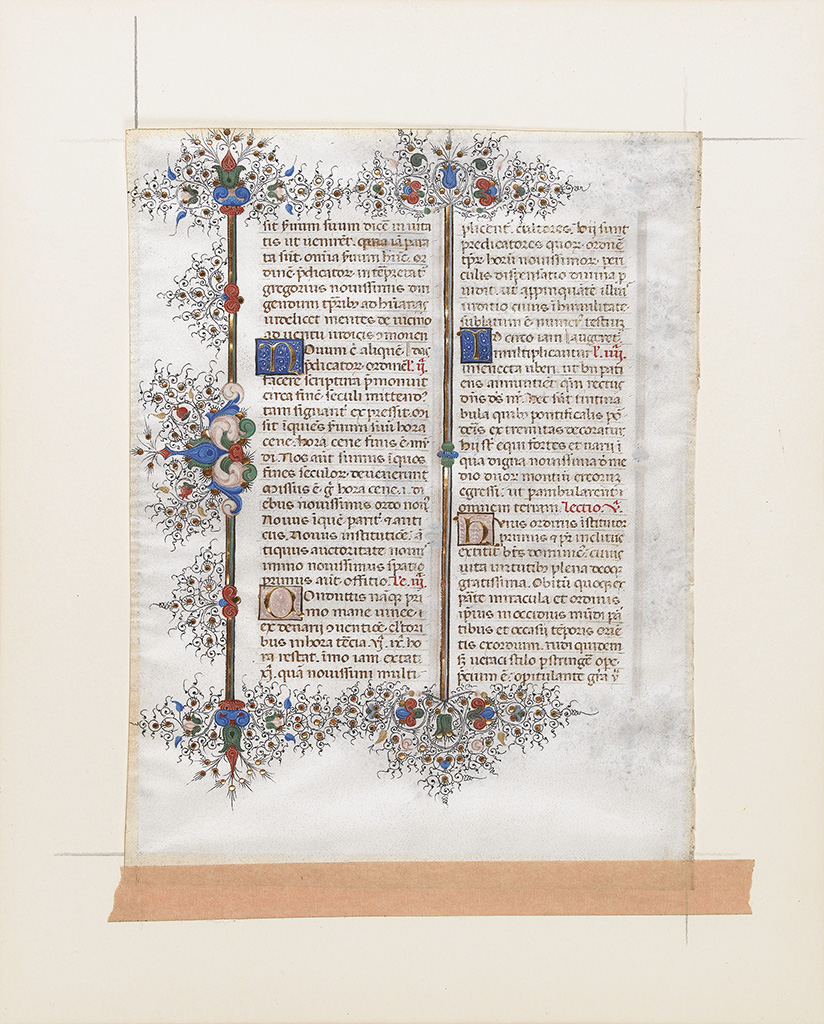 sit s̄uum suum dicē in uita
tis ut uenirēt. quia iā para
ta sūt. om̄ia s̄uum hūc. or
dinē p̄dicator. int̄ṗretat̄
gregorius nouissimus
gendum tp̄riby ad huanas
uidelicet mentes de uicino
ad uentu iudicis ꝯmonen
Nouum ē aliquē das
p̄dicator. ordinē. l'. ij.
facere scriptura p̄monuit
circa finē seculi mittendo.
tam signant̄ expressit. 
sit iquēs s̄uum suū hora
cene. hora cene finis ē mū
di. Nos aūt sumus i quos
fines seculor. deuenerunt
missus ē. g̊ hora cene. i. di
ebus nouissimis ordo nouꝯ
Nouus iquē parit̄ & anti
cus. Nouus institutiōe. ā
tiquus auctoritate nouꝯ
immo nouissimus spatio
primus aūt officio. Le. iij.
Conductis nāq pri
mo mane uinee i
ex denarii ꝯuentiōe. cl̄tori
bus in hora t̄cia. vj. ix. ho
ra restat. īmo iam extat
xj. quā nouissimi multi
plicent̄. cultores. hii sunt
predicatores quor. ordinē
tp̄r. horū nouissimor. peri
culis dispensatio diuina p
uidit. ut appinquāte illiꝯ
iuditio cuius ī humilitate
sublatum ē
Idcirco iam augent
multiplicantur l'. iiij.
in senecta uberi. ut bn̄ pati
entes annuntiēt qm̄ rectus
dn̄s ds̄ nr̄. Hec sūt tintina
bula quiby pontificalis po
extremitas decoratur
hii sūt equi fortes et uarii i
qua digna nouissima ō me
dio duor montiū
egressi. ut pambularent i
omnem terram. lectio. v.
Huius ordinis īstitutor
primus & pr̄ inclitus
extitit bt̄s dominic̄. cuius
uita uirtutiby plena deoq
gratissima. Obitū quoq ex
parte miracula et ordinis
ip̄ius in occiduis mūdi pa
tibus et occasu tēporis oriē
tis exordium. rudi quidem
s; ueraci stilo pstringē ope
precium ē. opitulante gr̄a